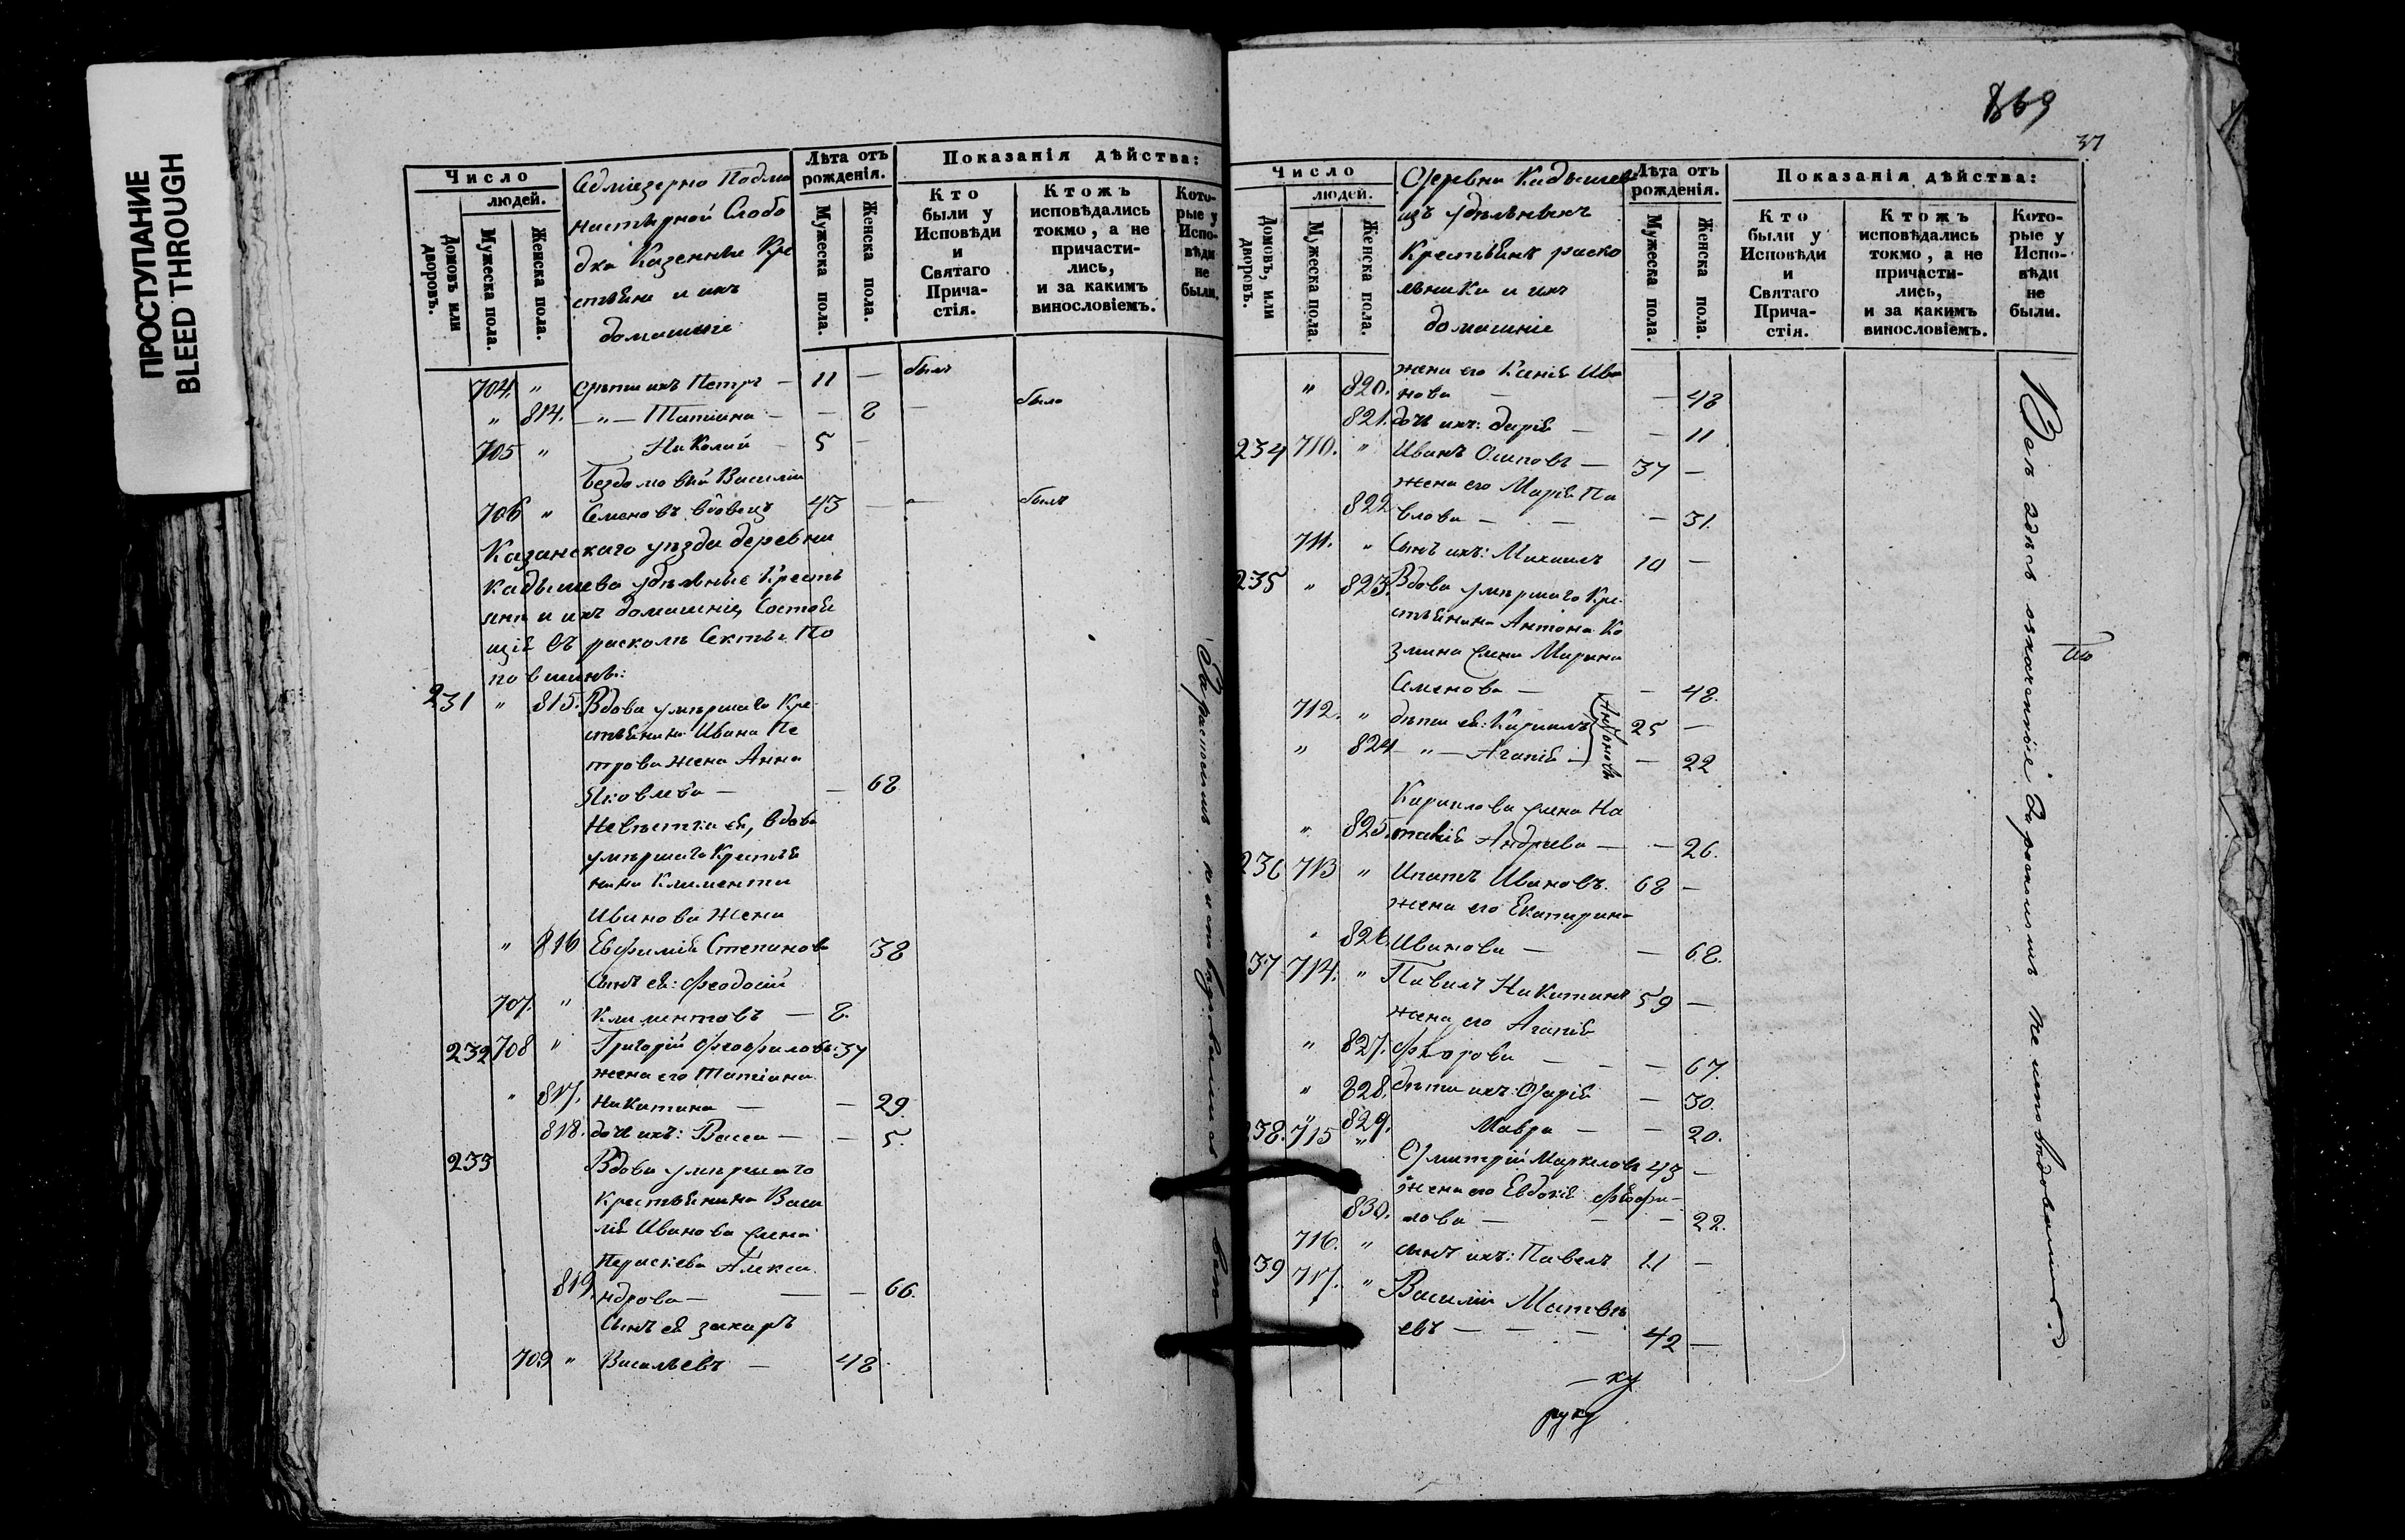 ПРОСТУПАНИЕ
BLEED THROUGH
Число
людей.
Домовъ или дворовъ.
Мужеска пола.
Женска пола.
Слобо
дка Казенныи Кре
стьяни и ихъ
домашніе
Лѣта отъ рожденія.
Мужеска пола.
Женска пола.
Показанія дѣйства:
Кто были у Исповѣди и Святаго Прича-стія.
Ктожъ исповѣдались токмо, а не причасти-лись, и за какимъ винословіемъ.
Кото-рые у Испо-вѣди не были.
704. " дѣти ихъ Петръ — 11 — былъ
" 814. — " — Татіана — — 8 — была
705 " Николай — 5 —
Бездомовый Василій
706 " Семеновъ вдовецъ 43 — — былъ
Казанскаго уѣзда деревни
Кадышева удѣльные Кресть
яне и ихъ домашніе Состоя
щіе въ расколѣ Секты По
повшины:
231 " 815. Вдова умершаго Кре
стьянина Ивана Пе
трова жена Анна
Яковлева — — 68
Невѣстка ея, вдова
умершаго Крестья
нина Климента
Иванова жена
" 816 Евфимія Степанова 38
Сынъ ея: Феодосій
707. " Климентовъ — 8.
232 708 " Григорій Феофиловъ 37
жена его Татіана
" 817. Никитина — — 29.
818. дочь ихъ: Васса — — 5.
233 Вдова умершаго
Крестьянина Васи
лія Иванова жена
Параскева Алекса
819. ндрова — — — 66.
Сынъ ея Захаръ
709 " Васильевъ — 48
869
37
Число
людей.
Домовъ, или дворовъ.
Мужеска пола.
Женска пола.
Деревни Кадышева
изъ удѣльныхъ
Крестьянъ раско
льники и ихъ
домашніе
Лѣта отъ рожденія.
Мужеска пола.
Женска пола.
Показанія дѣйства:
Кто были у Исповѣди и Святаго Прича-стія.
Ктожъ исповѣдались токмо, а не причасти-лись, и за какимъ винословіемъ.
Кото-рые у Испо-вѣди не были.
жена его Ксенія Ива
" 820. нова — — 48
821. дочь ихъ: Дарія — — 11
234 710. " Иванъ Осиповъ — 37 —
жена его Марія Па
822 влова — — — 31.
711. " Сынъ ихъ: Михаилъ 10 —
235 " 823. Вдова умершаго Кре
стьянина Антона Ко
змина жена Марина
Семенова — — 48.
712. " дѣти ея: Кириллъ 25 —
" 824 — " — Агапія — — 22
Антоновы
Кириллова жена На
" 825. талія Андреева — — 26.
236 713 " Ипатъ Ивановъ. 68 —
жена его Екатерина
" 826. Иванова — — 68.
37 714. " Павелъ Никитинъ 59 —
жена его Агапія
" 827. Федорова — — 67.
" 828. дѣти ихъ: Дарія — 30.
" 829. Мавра — — 20.
38. 715 " Дмитрій Маркеловъ 43 —
жена его Евдокія Феофи-
830. лова — — — 22.
716. " сынъ ихъ: Павелъ 11 —
39 717. " Василій Матвѣ
евъ — — — 42 —
Всѣ здѣсь означенные За расколомъ не исповѣдовались
— ку
руку